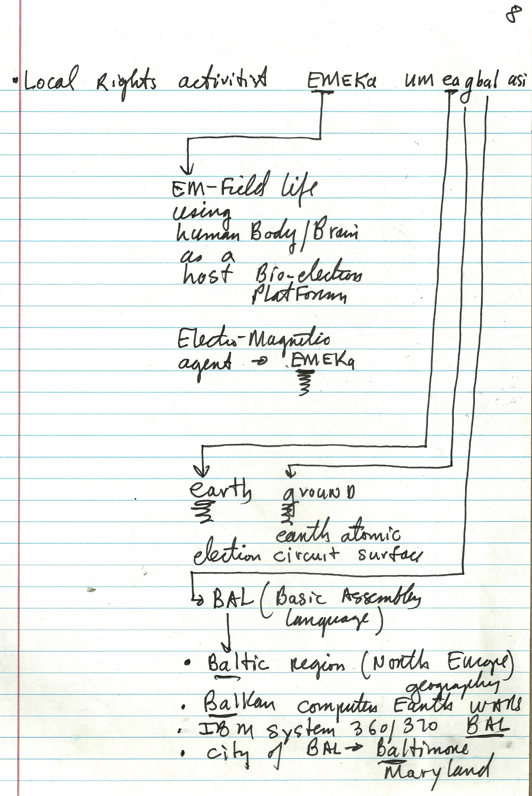 8
• Local Rights activitist EMEKa um eagbal asi
EM-Field life
using
human Body/Brain
as a
host Bio-electron
Platform
Electro-Magnetic
agent → EMEKa
earth ground
earth atomic
election circuit surface
BAL (Basic Assembley
language)
• Baltic region (North Europe)
geography
• Balkan computer Earth WARS
• IBM System 360/370 BAL
• city of BAL → Baltimore
Maryland